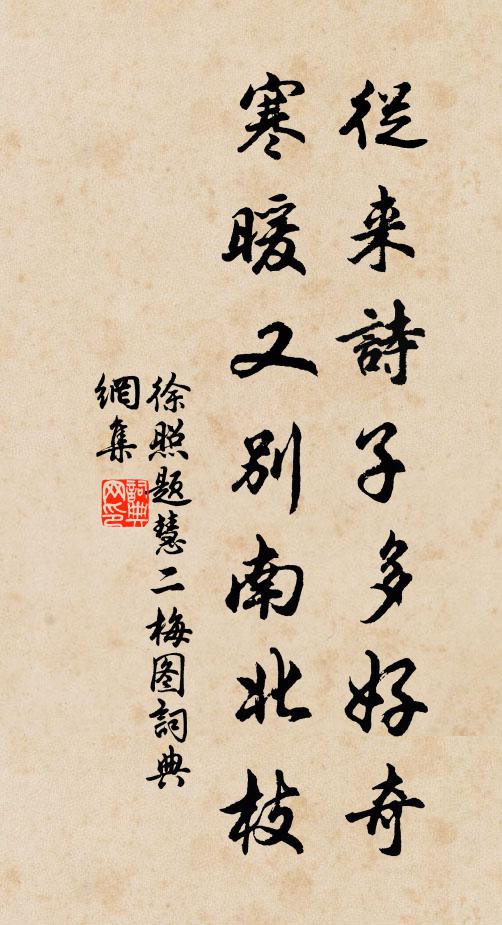 從来詩子多好奇
寒暖又别南北枝
徐照題慧二梅图詞典
網集
詞典
网印